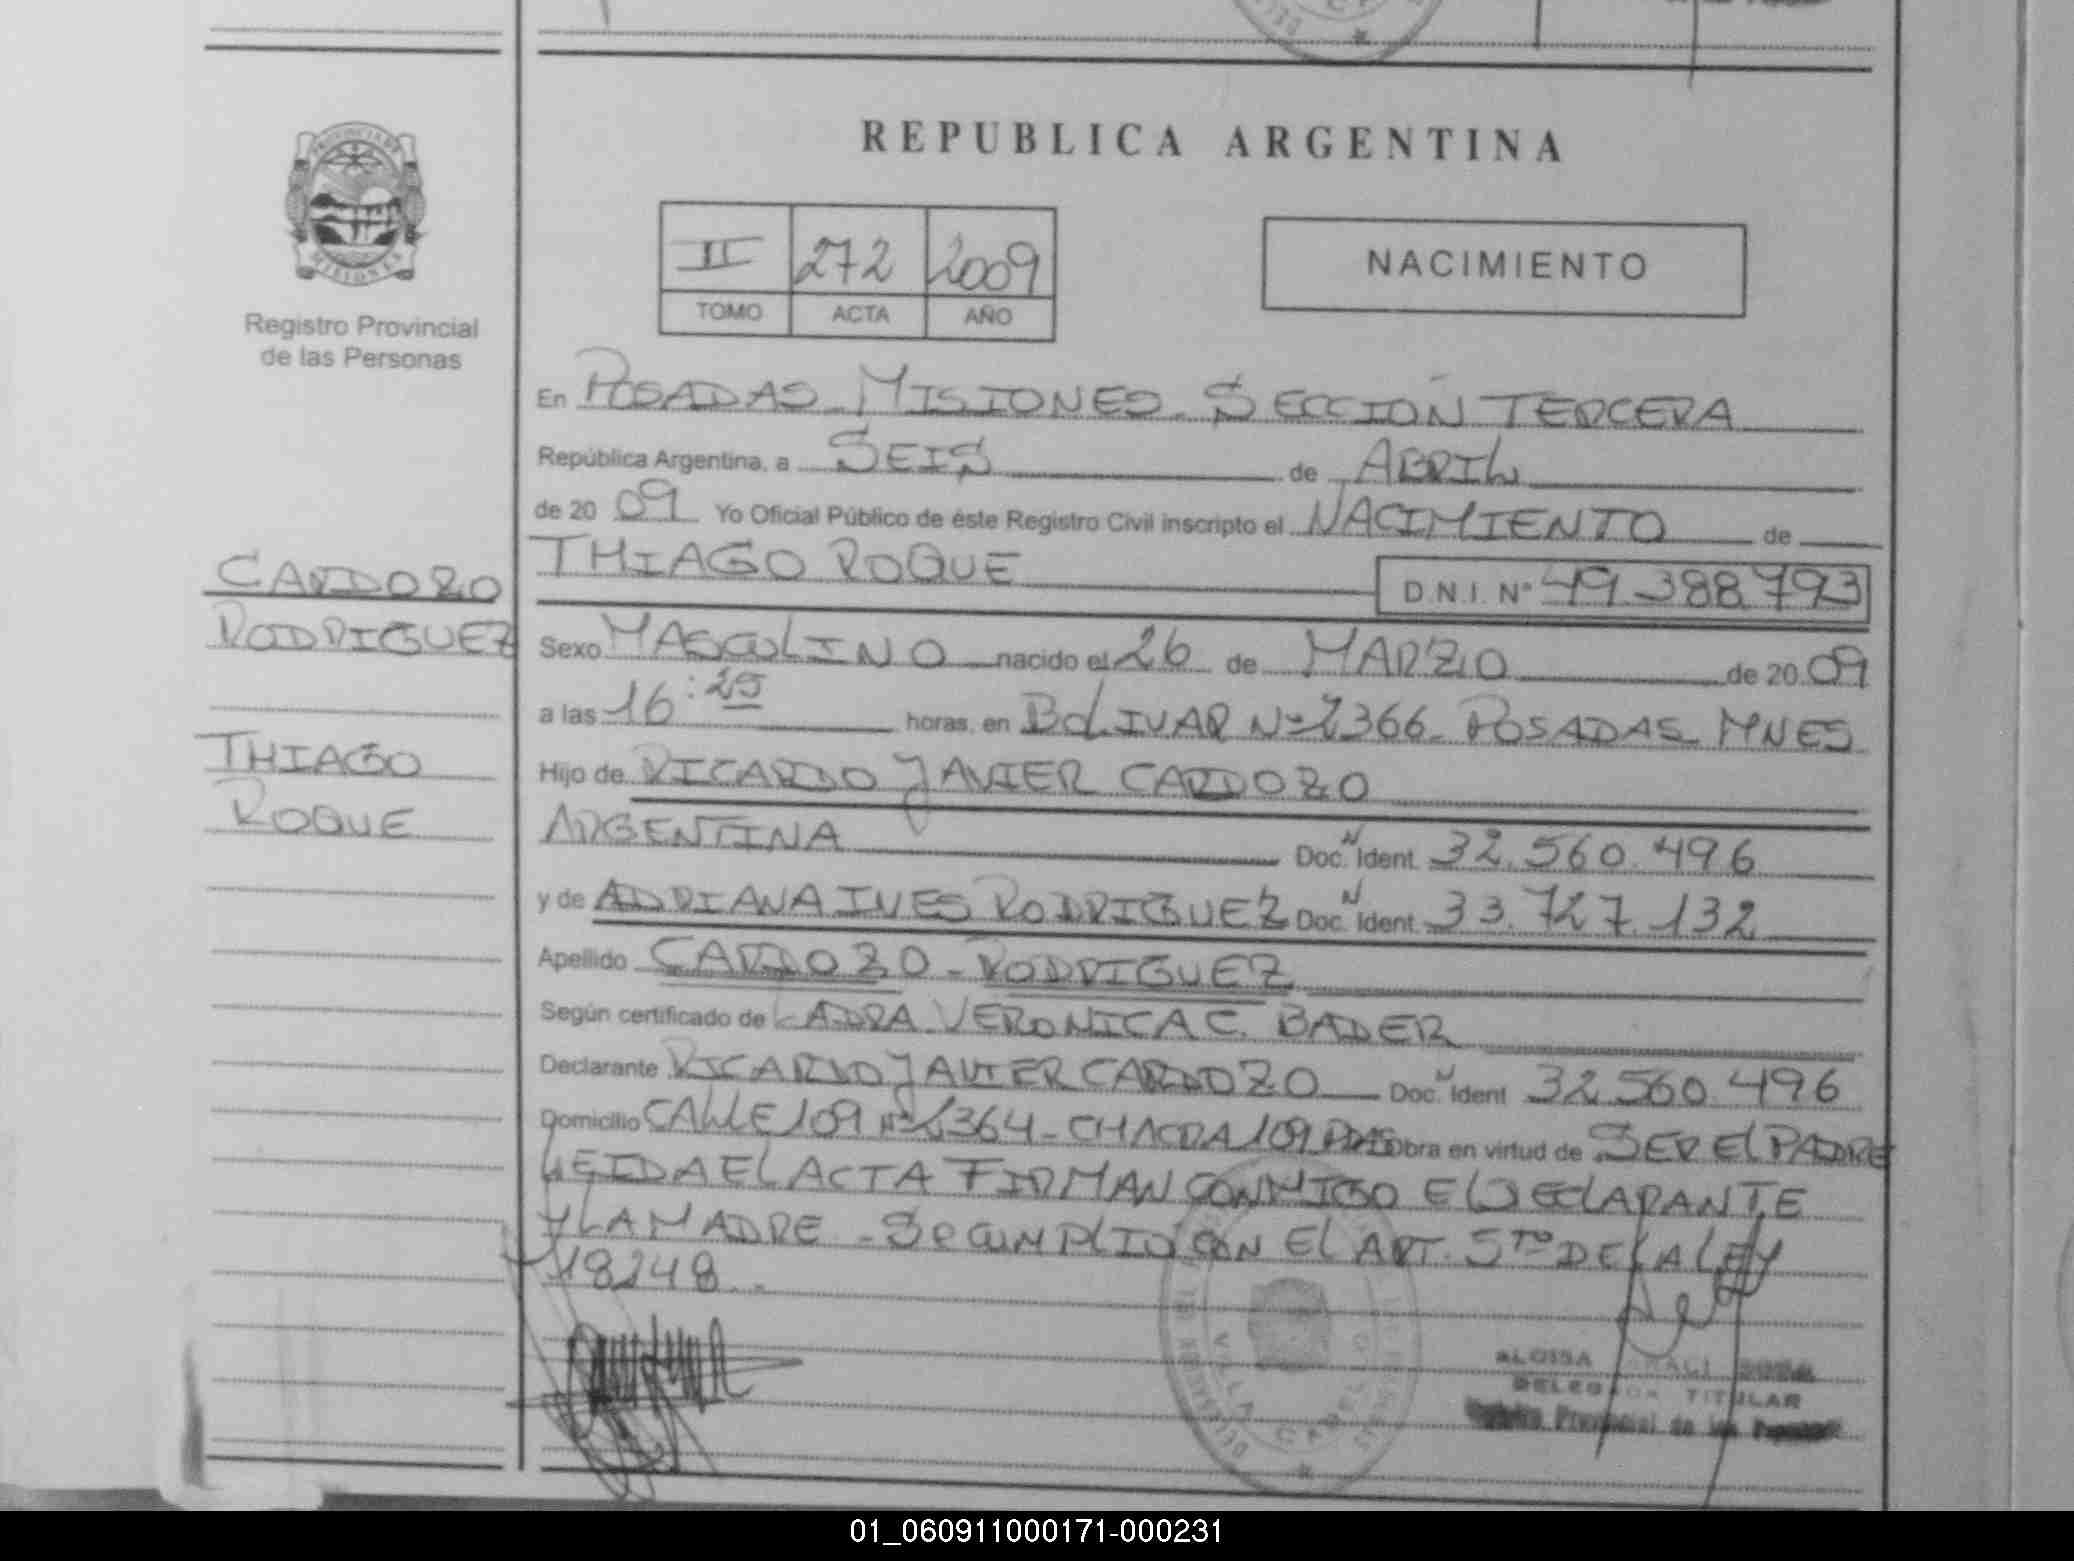 REPUBLICA ARGENTINA
PROVINCIA DE
MISIONES
Registro Provincial
de las Personas
II 272 2009
TOMO ACTA AÑO
NACIMIENTO
En POSADAS - MISIONES - SECCION TERCERA
República Argentina, a SEIS de ABRIL
de 20 09 Yo Oficial Público de éste Registro Civil inscripto el NACIMIENTO de
THIAGO ROQUE D.N.I. Nº 49.388.793
CARDOZO
RODRIGUEZ
THIAGO
ROQUE
Sexo MASCULINO nacido el 26 de MARZO de 20 09
a las 16:25 horas, en BOLIVAR Nº 2366 - POSADAS - MNES
Hijo de RICARDO JAVIER CARDOZO
ARGENTINA Doc. N Ident. 32.560.496
y de ADRIANA INES RODRIGUEZ Doc. N Ident. 33.727.132
Apellido CARDOZO - RODRIGUEZ
Según certificado de LADRA VERONICA C. BADER
Declarante RICARDO JAVIER CARDOZO Doc. N Ident 32.560.496
Domicilio CALLE 109 Nº 2364 - CHACRA 109 PDAS Obra en virtud de SER EL PADRE
LEIDA EL ACTA FIRMAN CONMIGO EL DECLARANTE
Y LA MADRE - SE CUMPLIO CON EL ART. 5TO DE LA LEY
18248.-
DELEGADA TITULAR
Registro Provincial de las Personas
VILLA CABELLO
01_060911000171-000231